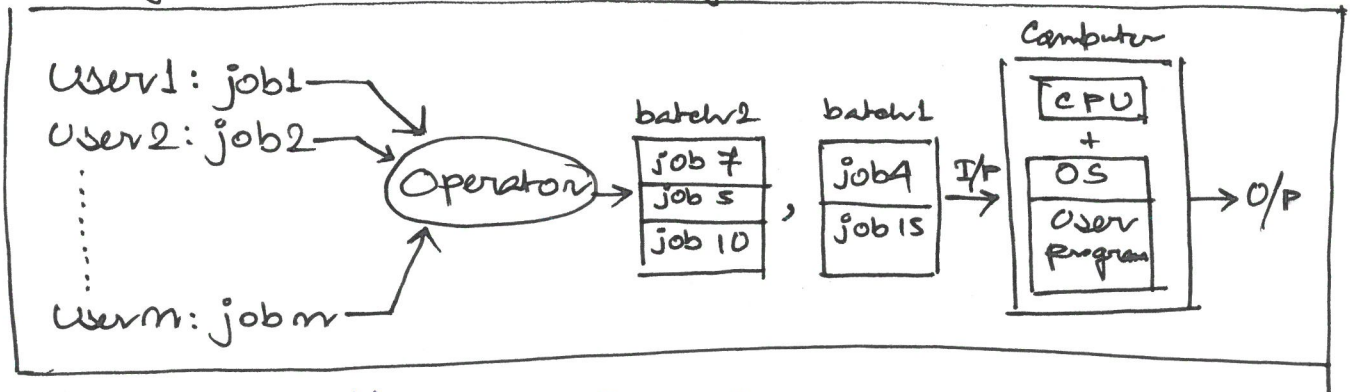 User1: job1
User2: job2
Usern: jobn
Operator
batch2
job 7
job 5
job 10
,
batch1
job4
job 15
I/P
Computer
CPU
+
OS
User
program
O/P